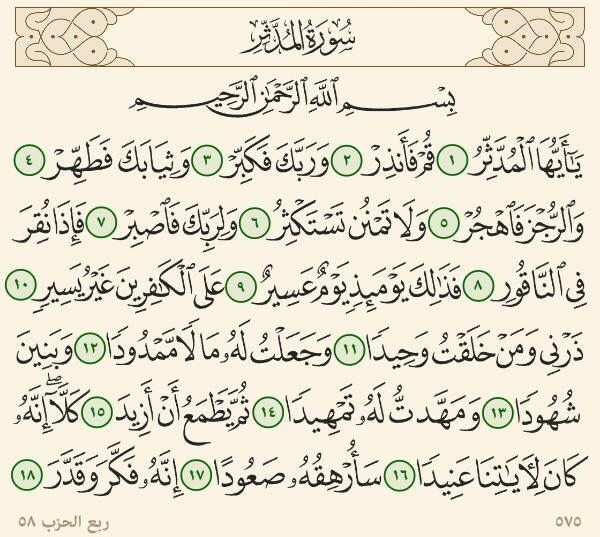 سُورَةُ المُدَّثِّرِ
بِسْمِ ٱللَّهِ ٱلرَّحْمَٰنِ ٱلرَّحِيمِ
يَٰٓأَيُّهَا ٱلْمُدَّثِّرُ ١ قُمْ فَأَنذِرْ ٢ وَرَبَّكَ فَكَبِّرْ ٣ وَثِيَابَكَ فَطَهِّرْ ٤
وَٱلرُّجْزَ فَٱهْجُرْ ٥ وَلَا تَمْنُن تَسْتَكْثِرُ ٦ وَلِرَبِّكَ فَٱصْبِرْ ٧ فَإِذَا نُقِرَ
فِى ٱلنَّاقُورِ ٨ فَذَٰلِكَ يَوْمَئِذٍ يَوْمٌ عَسِيرٌ ٩ عَلَى ٱلْكَٰفِرِينَ غَيْرُ يَسِيرٍ ١٠
ذَرْنِى وَمَنْ خَلَقْتُ وَحِيدًا ١١ وَجَعَلْتُ لَهُۥ مَالًا مَّمْدُودًا ١٢ وَبَنِينَ
شُهُودًا ١٣ وَمَهَّدتُّ لَهُۥ تَمْهِيدًا ١٤ ثُمَّ يَطْمَعُ أَنْ أَزِيدَ ١٥ كَلَّآ ۖ إِنَّهُۥ
كَانَ لِأَيَٰتِنَا عَنِيدًا ١٦ سَأُرْهِقُهُۥ صَعُودًا ١٧ إِنَّهُۥ فَكَّرَ وَقَدَّرَ ١٨
٥٧٥ ربع الحزب ٥٨